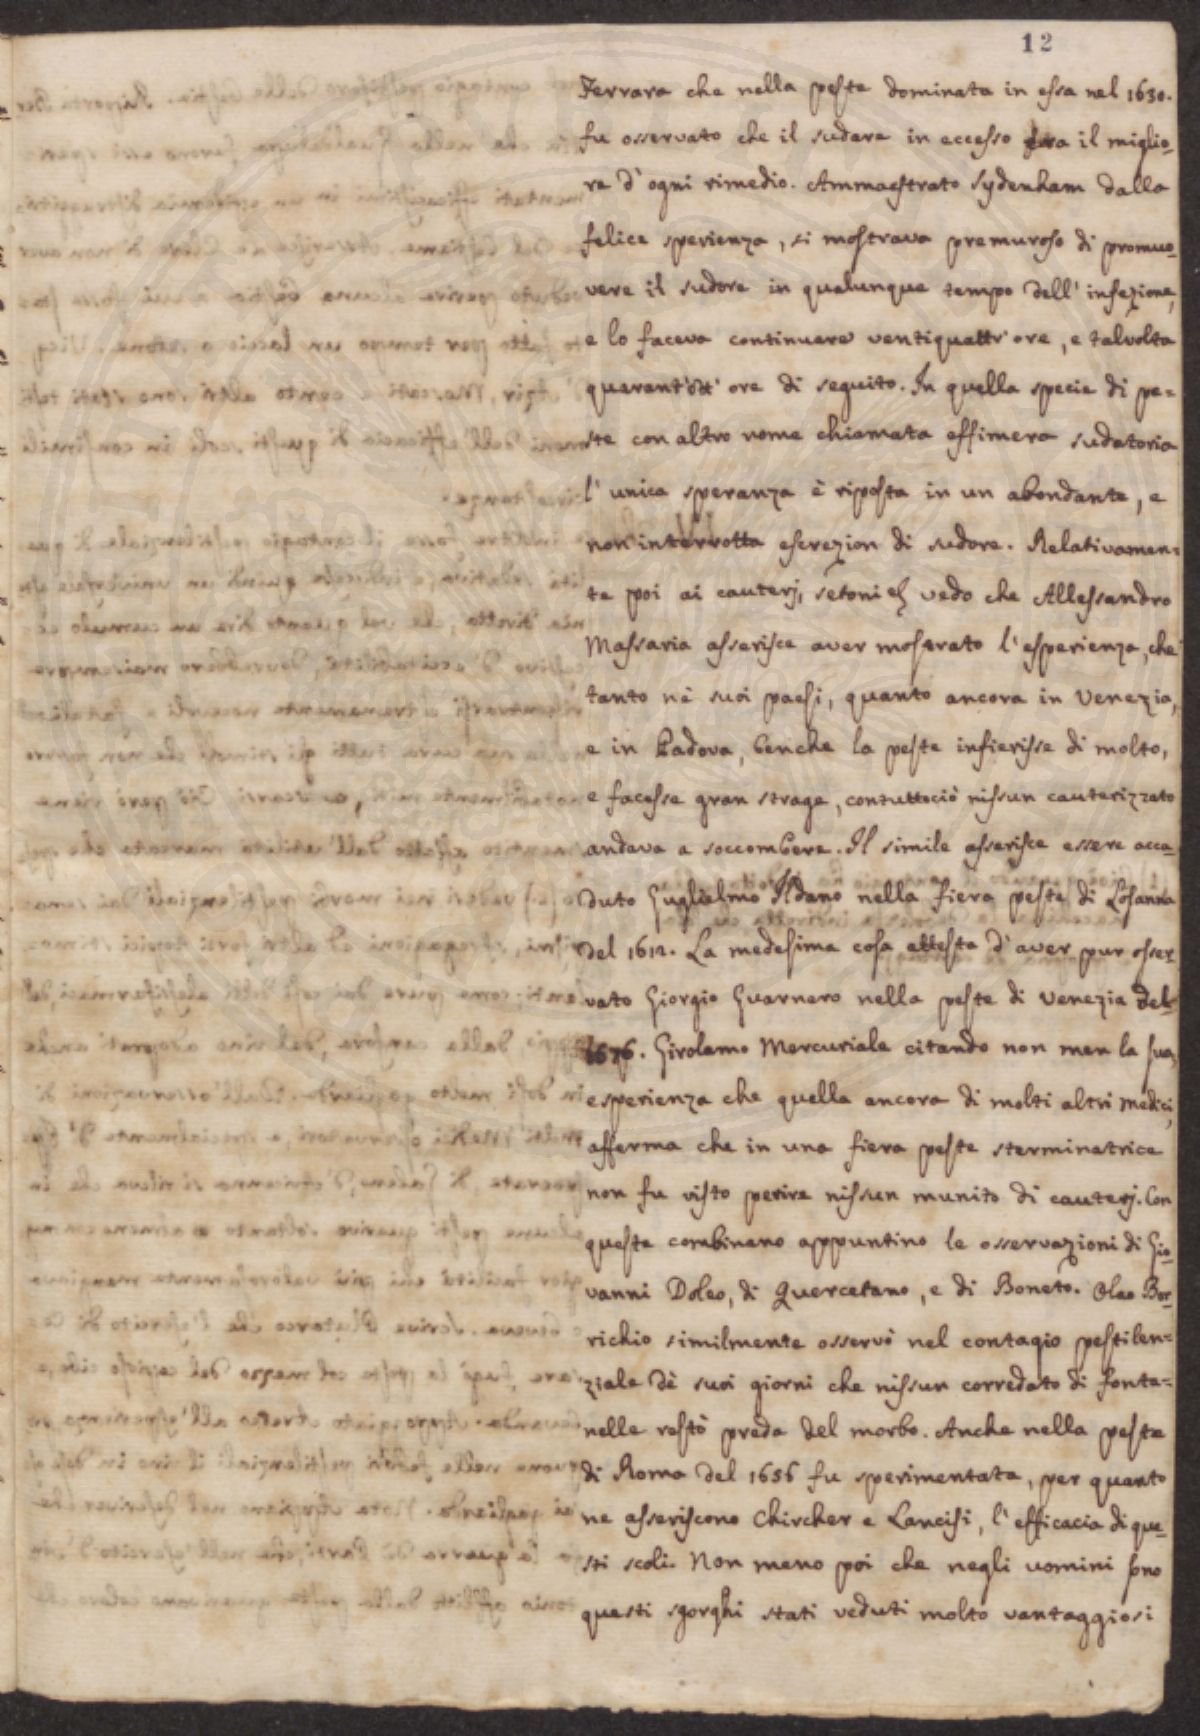 12
Ferrara che nella peste dominata in essa nel 1630.
fu osservato che il sudare in eccesso era il miglio-
re d'ogni rimedio. Ammaestrato Sydenham dalla
felice sperienza, si mostrava premuroso di promuo-
vere il sudore in qualunque tempo dell'infezione,
e lo faceva continuare ventiquattr'ore, e talvolta
quarant'ott'ore di seguito. In quella specie di pe-
ste con altro nome chiamata effimera sudatoria
l'unica speranza è riposta in un abondante, e
non interrotta escrezion di sudore. Relativamen-
te poi ai cauterj, setoni vedo che Allessandro
Massaria asserisce aver mostrato l'esperienza, che
tanto ne' suoi paesi, quanto ancora in Venezia,
e in Padova, benche la peste infierisse di molto,
e facesse gran strage, contuttociò nissun cauterizzato
andava a soccombere. Il simile asserisce essere acca-
duto Guglielmo Ildano nella fiera peste di Losanna
del 1612. La medesima cosa attesta d'aver pur osser-
vato Giorgio Guarnero nella peste di Venezia del
1576. Girolamo Mercuriale citando non men la sua,
esperienza che quella ancora di molti altri Medici,
afferma che in una fiera peste sterminatrice
non fu visto perire nissun munito di cauterj. Con
queste combinano appuntino le osservazioni di Gio-
vanni Doleo, di Quercetano, e di Boneto. Olao Bor-
richio similmente osservò nel contagio pestilen-
ziale dè suoi giorni che nissun corredato di fonta-
nelle restò preda del morbo. Anche nella peste
di Roma del 1656 fu sperimentata, per quanto
ne asseriscono Chircher e Lancisi, l'efficacia di que-
sti scoli. Non meno poi che negli uomini sono
questi sgorghi stati veduti molto vantaggiosi